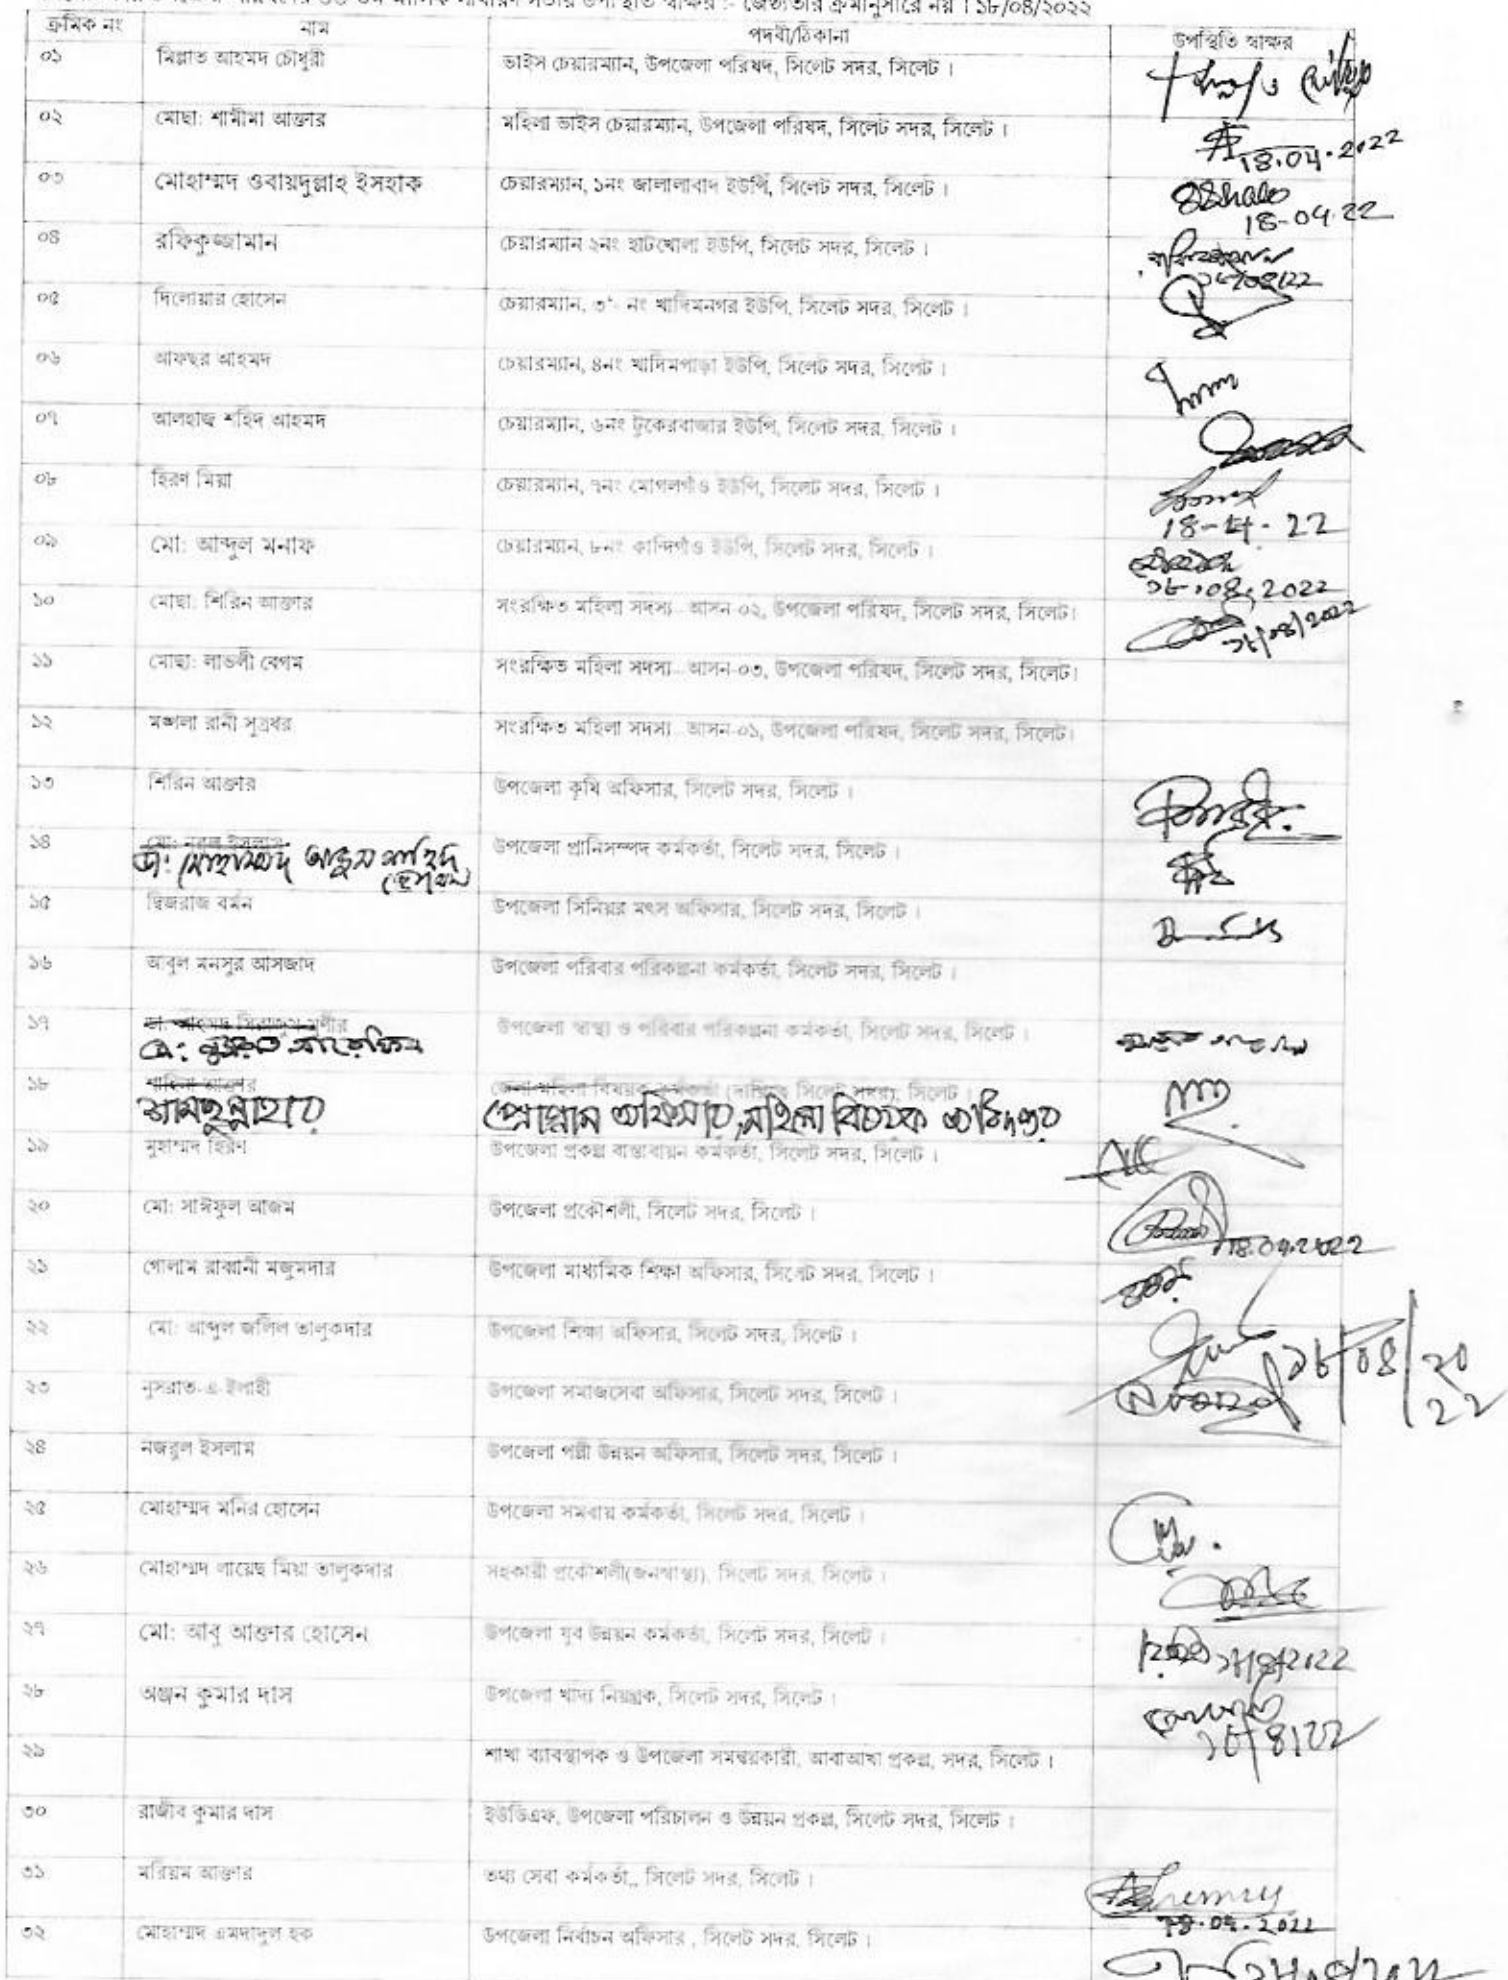 মাসিক সাধারণ সভার উপস্থিতি স্বাক্ষর :- জেষ্ঠ্যতার ক্রমানুসারে নয়। ১৮/০৪/২০২২
ক্রমিক নং নাম পদবী/ঠিকানা উপস্থিতি স্বাক্ষর
০১ মিল্লাত আহমদ চৌধুরী ভাইস চেয়ারম্যান, উপজেলা পরিষদ, সিলেট সদর, সিলেট।
০২ মোছা: শামীমা আক্তার মহিলা ভাইস চেয়ারম্যান, উপজেলা পরিষদ, সিলেট সদর, সিলেট। 18.04.2022
০৩ মোহাম্মদ ওবায়দুল্লাহ ইসহাক চেয়ারম্যান, ১নং জালালাবাদ ইউপি, সিলেট সদর, সিলেট। 18-04-22
০৪ রফিকুজ্জামান চেয়ারম্যান ২নং হাটখোলা ইউপি, সিলেট সদর, সিলেট।
০৫ দিলোয়ার হোসেন চেয়ারম্যান, ৩ নং খাদিমনগর ইউপি, সিলেট সদর, সিলেট।
০৬ আফছর আহমদ চেয়ারম্যান, ৪নং খাদিমপাড়া ইউপি, সিলেট সদর, সিলেট।
০৭ আলহাজ্ব শহিদ আহমদ চেয়ারম্যান, ৬নং টুকেরবাজার ইউপি, সিলেট সদর, সিলেট।
০৮ হিরণ মিয়া চেয়ারম্যান, ৭নং মোগলগাঁও ইউপি, সিলেট সদর, সিলেট। 18-4-22
০৯ মো: আব্দুল মনাফ চেয়ারম্যান, ৮নং কান্দিগাঁও ইউপি, সিলেট সদর, সিলেট। ১৮.০৪.2022
১০ মোছা: শিরিন আক্তার সংরক্ষিত মহিলা সদস্য- আসন ০২, উপজেলা পরিষদ, সিলেট সদর, সিলেট। ১৮/০৪/2022
১১ মোছা: লাভলী বেগম সংরক্ষিত মহিলা সদস্য- আসন-০৩, উপজেলা পরিষদ, সিলেট সদর, সিলেট।
১২ মঙ্গলা রানী সুত্রধর সংরক্ষিত মহিলা সদস্য- আসন-০১, উপজেলা পরিষদ, সিলেট সদর, সিলেট।
১৩ শিরিন আক্তার উপজেলা কৃষি অফিসার, সিলেট সদর, সিলেট।
১৪ মো: নুরুল ইসলাম উপজেলা প্রানিসম্পদ কর্মকর্তা, সিলেট সদর, সিলেট।
ডা: মোহাম্মদ আব্দুল শহিদ হোসেন
১৫ দ্বিজরাজ বর্মন উপজেলা সিনিয়র মৎস অফিসার, সিলেট সদর, সিলেট।
১৬ আবুল মনসুর আসজাদ উপজেলা পরিবার পরিকল্পনা কর্মকর্তা, সিলেট সদর, সিলেট।
১৭ ডা: আহমেদ সিরাজুম মুনীর উপজেলা স্বাস্থ্য ও পরিবার পরিকল্পনা কর্মকর্তা, সিলেট সদর, সিলেট।
ডা: নুসরাত আরেফিন
১৮ শাহিনা আক্তার জেলা মহিলা বিষয়ক কর্মকর্তা (দায়িত্বে সিলেট সদর), সিলেট।
শামছুন্নাহার প্রোগ্রাম অফিসার, মহিলা বিষয়ক অধিদপ্তর
১৯ মুহাম্মদ হিরণ উপজেলা প্রকল্প বাস্তাবায়ন কর্মকর্তা, সিলেট সদর, সিলেট।
২০ মো: সাঈফুল আজম উপজেলা প্রকৌশলী, সিলেট সদর, সিলেট। 18.04.2022
২১ গোলাম রাব্বানী মজুমদার উপজেলা মাধ্যমিক শিক্ষা অফিসার, সিলেট সদর, সিলেট।
২২ মো: আব্দুল জলিল তালুকদার উপজেলা শিক্ষা অফিসার, সিলেট সদর, সিলেট। ১৮/০৪/২০২২
২৩ নুসরাত-এ-ইলাহী উপজেলা সমাজসেবা অফিসার, সিলেট সদর, সিলেট।
২৪ নজরুল ইসলাম উপজেলা পল্লী উন্নয়ন অফিসার, সিলেট সদর, সিলেট।
২৫ মোহাম্মদ মনির হোসেন উপজেলা সমবায় কর্মকর্তা, সিলেট সদর, সিলেট।
২৬ মোহাম্মদ লায়েছ মিয়া তালুকদার সহকারী প্রকৌশলী(জনস্বাস্থ্য), সিলেট সদর, সিলেট।
২৭ মো: আবু আক্তার হোসেন উপজেলা যুব উন্নয়ন কর্মকর্তা, সিলেট সদর, সিলেট। ১৮/৪/2022
২৮ অঞ্জন কুমার দাস উপজেলা খাদ্য নিয়ন্ত্রক, সিলেট সদর, সিলেট। ১৮/৪/২২
২৯ শাখা ব্যাবস্থাপক ও উপজেলা সমন্বয়কারী, আবাআখা প্রকল্প, সদর, সিলেট।
৩০ রাজীব কুমার দাস ইউডিএফ, উপজেলা পরিচালন ও উন্নয়ন প্রকল্প, সিলেট সদর, সিলেট।
৩১ মরিয়ম আক্তার তথ্য সেবা কর্মকর্তা,, সিলেট সদর, সিলেট।
৩২ মোহাম্মদ এমদাদুল হক উপজেলা নির্বাচন অফিসার , সিলেট সদর, সিলেট।